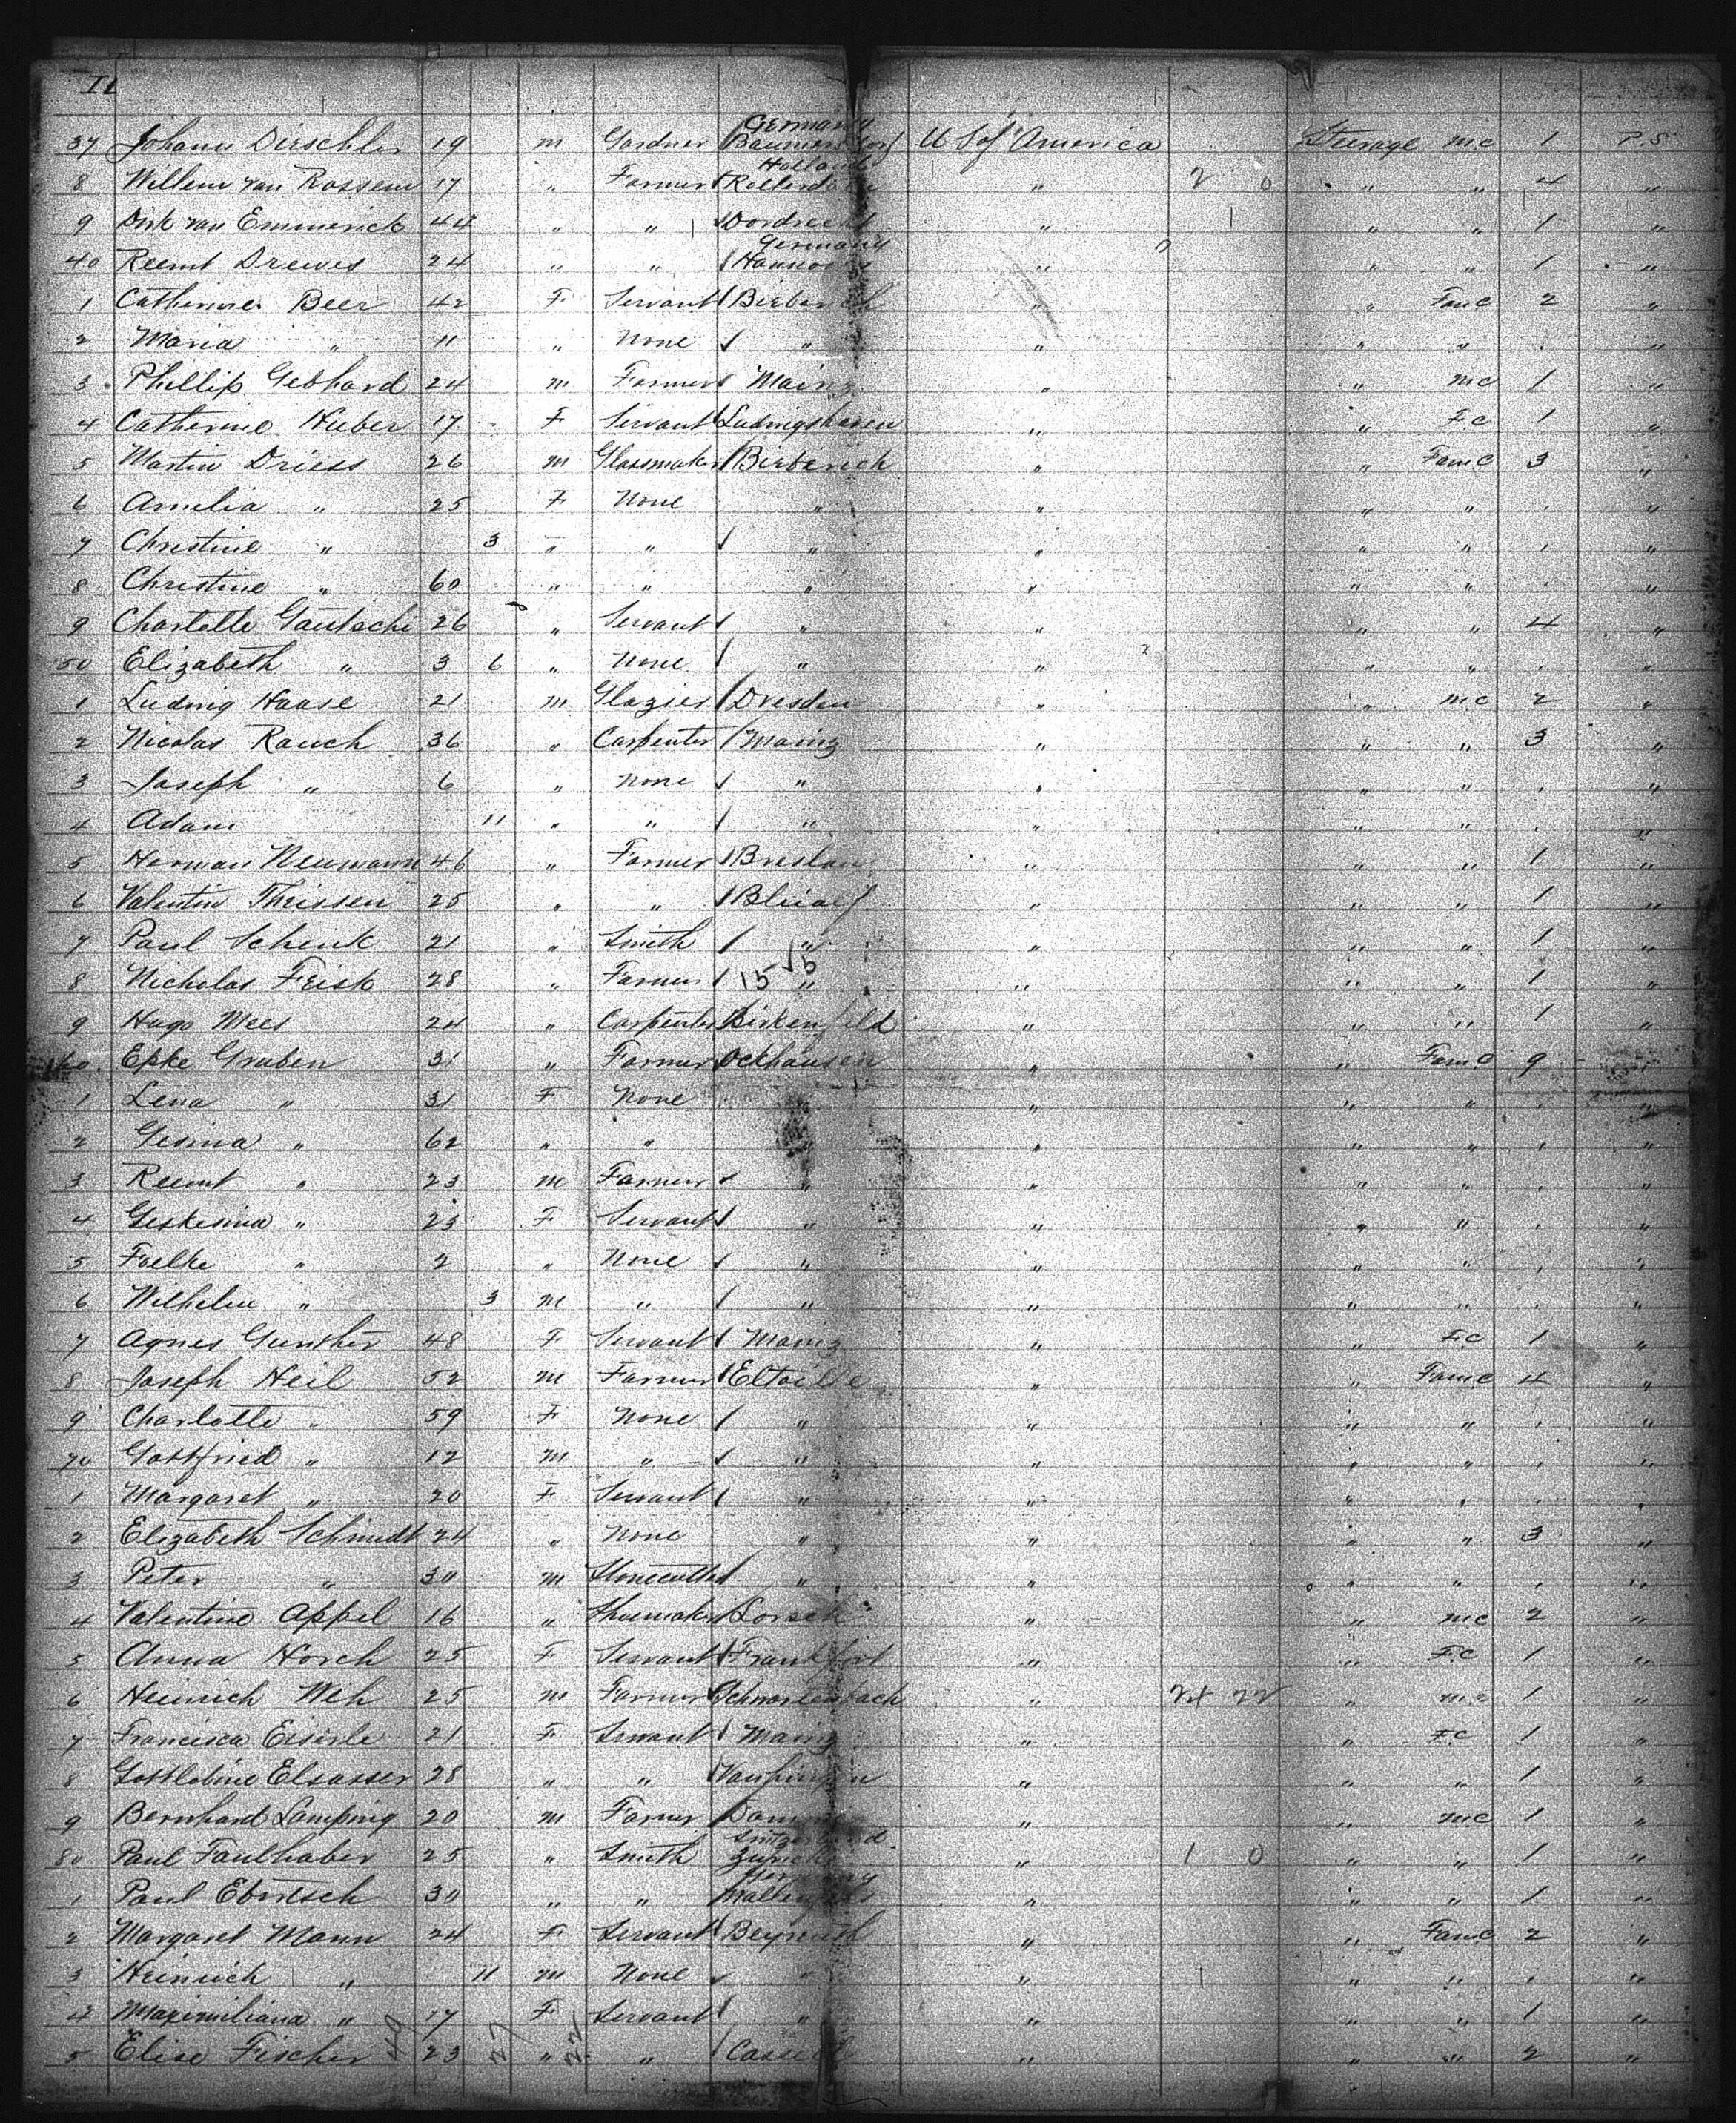 II
Germany
37 Johann Dirschler 19 m Gardner U S of America Steerage mc 1 P.S
Holland
8 Willem van Rossem 17 " Farmer Rotterdam " 2 0 " " 4 "
9 Dirk van Emmerick 44 " " Dordrecht " 1 " " 1 "
Germany
40 Reemt Drewes 24 " " Hannover " " " 1 "
1 Catherine Beer 42 F Servant " " Fam C 2 "
2 Maria " 11 " None " " " " . "
3 Phillip Gebhard 24 m Farmer Mainz " " mc 1 "
4 Catherine Huber 17 F Servant Ludwigshafen " " F C 1 "
5 Martin Driess 26 m Glassmaker Bieberich " " Fam C 3 "
6 Amelia " 25 F None " " " " . "
7 Christine " 3 " " " " " " . "
8 Christine " 60 " " " " " " . "
9 Charlotte Gautschi 26 " Servant " " " " 4 "
50 Elizabeth " 3 6 " None " " " " . "
1 Ludwig Haase 21 m Glazier Dresden " " mc 2 "
2 Nicolas Rauch 36 " Carpenter Mainz " " " 3 "
3 Joseph " 6 " None " " " " . "
4 Adam 11 " " " " " " . "
5 Herman Neumann 46 " Farmer Breslau " " " 1 "
6 Valentin Theissen 25 " " " " " 1 "
7 Paul Schenk 21 " Smith " " " " 1 "
8 Nicholas Feisk 28 " Farmer 15 15 " " " " 1 "
9 Hugo Mees 24 " Carpenter Birkenfeld " " " 1 "
60 Epke Gruben 31 " Farmer Ockhausen " " Fam C 9
1 Lena " 31 F None " " " . "
2 Gesina " 62 " " " " " " . "
3 Reemt " 23 m Farmer " " " " . "
4 Geskesina " 23 F Servant " " " " . "
5 Foelke " 2 " None " " " " . "
6 Wilhelm " 3 m " " " " " . "
7 Agnes Gunther 48 F Servant Mainz " " F C 1 "
8 Joseph Heil 52 m Farmer Eltville " " Fam C 4 "
9 Charlotte " 59 F None " " " " . "
70 Gottfried " 12 m " " " " " . "
1 Margaret " 20 F Servant " " " " . "
2 Elizabeth Schmidt 24 " None " " " " 3 "
3 Peter " 30 m Stonecutter " " " " . "
4 Valentine Appel 16 " Shoemaker Lorsch " " mc 2 "
5 Anna Horch 25 F Servant Frankfort " " F C 1 "
6 Heinrich Weh 25 m Farmer Schwartenbach " 24 22 " mc 1 "
7 Francisca Eiserle 21 F Servant Mainz " " F C 1 "
8 Gottlobine Elsasser 28 " " " " " 1 "
9 Bernhard Lamping 20 m Farmer " " mc 1 "
Switzerland
80 Paul Faulhaber 25 " Smith Zurich " 1 0 " " 1 "
Germany
1 Paul Ebresch 30 " " " " " 1 "
2 Margaret Mann 24 F Servant Beyreuth " " Fam C 2 "
3 Heinrich " 11 m None " " 1 " " . "
4 Maximiliana " 17 F Servant " " " " 1 "
5 Elise Fischer 49 23 27 " 22 " Cassel " " " 2 "